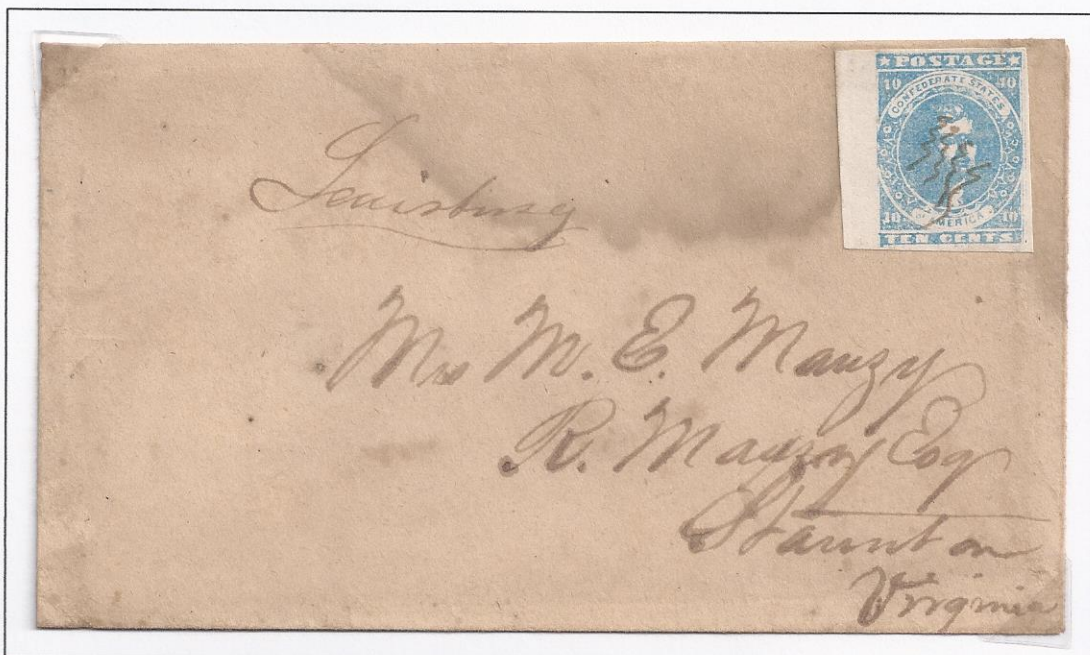 ★POSTAGE★
10 10
CONFEDERATE STATES
OF AMERICA
10 10
TEN CENTS
Lewisburg
Mrs M. E. Mauzy
R. Mauzy Esq
Staunton
Virginia